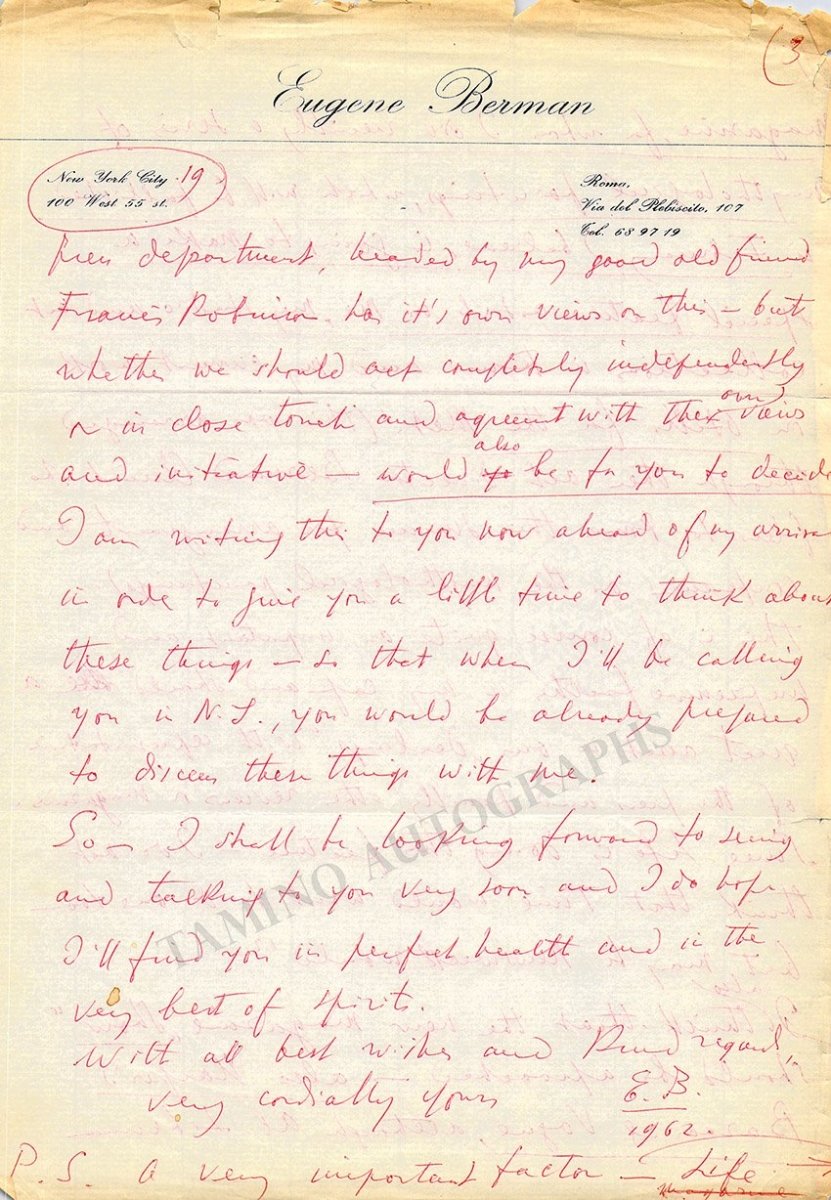 (3)
Eugene Berman
New York City 19
100 West 55 st.
Roma,
Via del Plebiscito, 107
Tel. 68 97 19
press department, headed by my good old friend
Francis Robinson has it's own views on this – but
whether we should act completely independently
or in close touch and agreement with their own views
and initiative – would also be for you to decide
I am writing this to you now ahead of my arrival
in order to give you a little time to think about
these things – so that when I'll be calling
you in N.Y., you would be already prepared
to discuss these things with me.
So – I shall be looking forward to seeing
and talking to you very soon and I do hope
I'll find you in perfect health and in the
very best of spirits.
With all best wishes and kind regards,
very cordially yours E.B.
1962.
P.S. A very important factor – Life
magazine
TAMINO AUTOGRAPHS